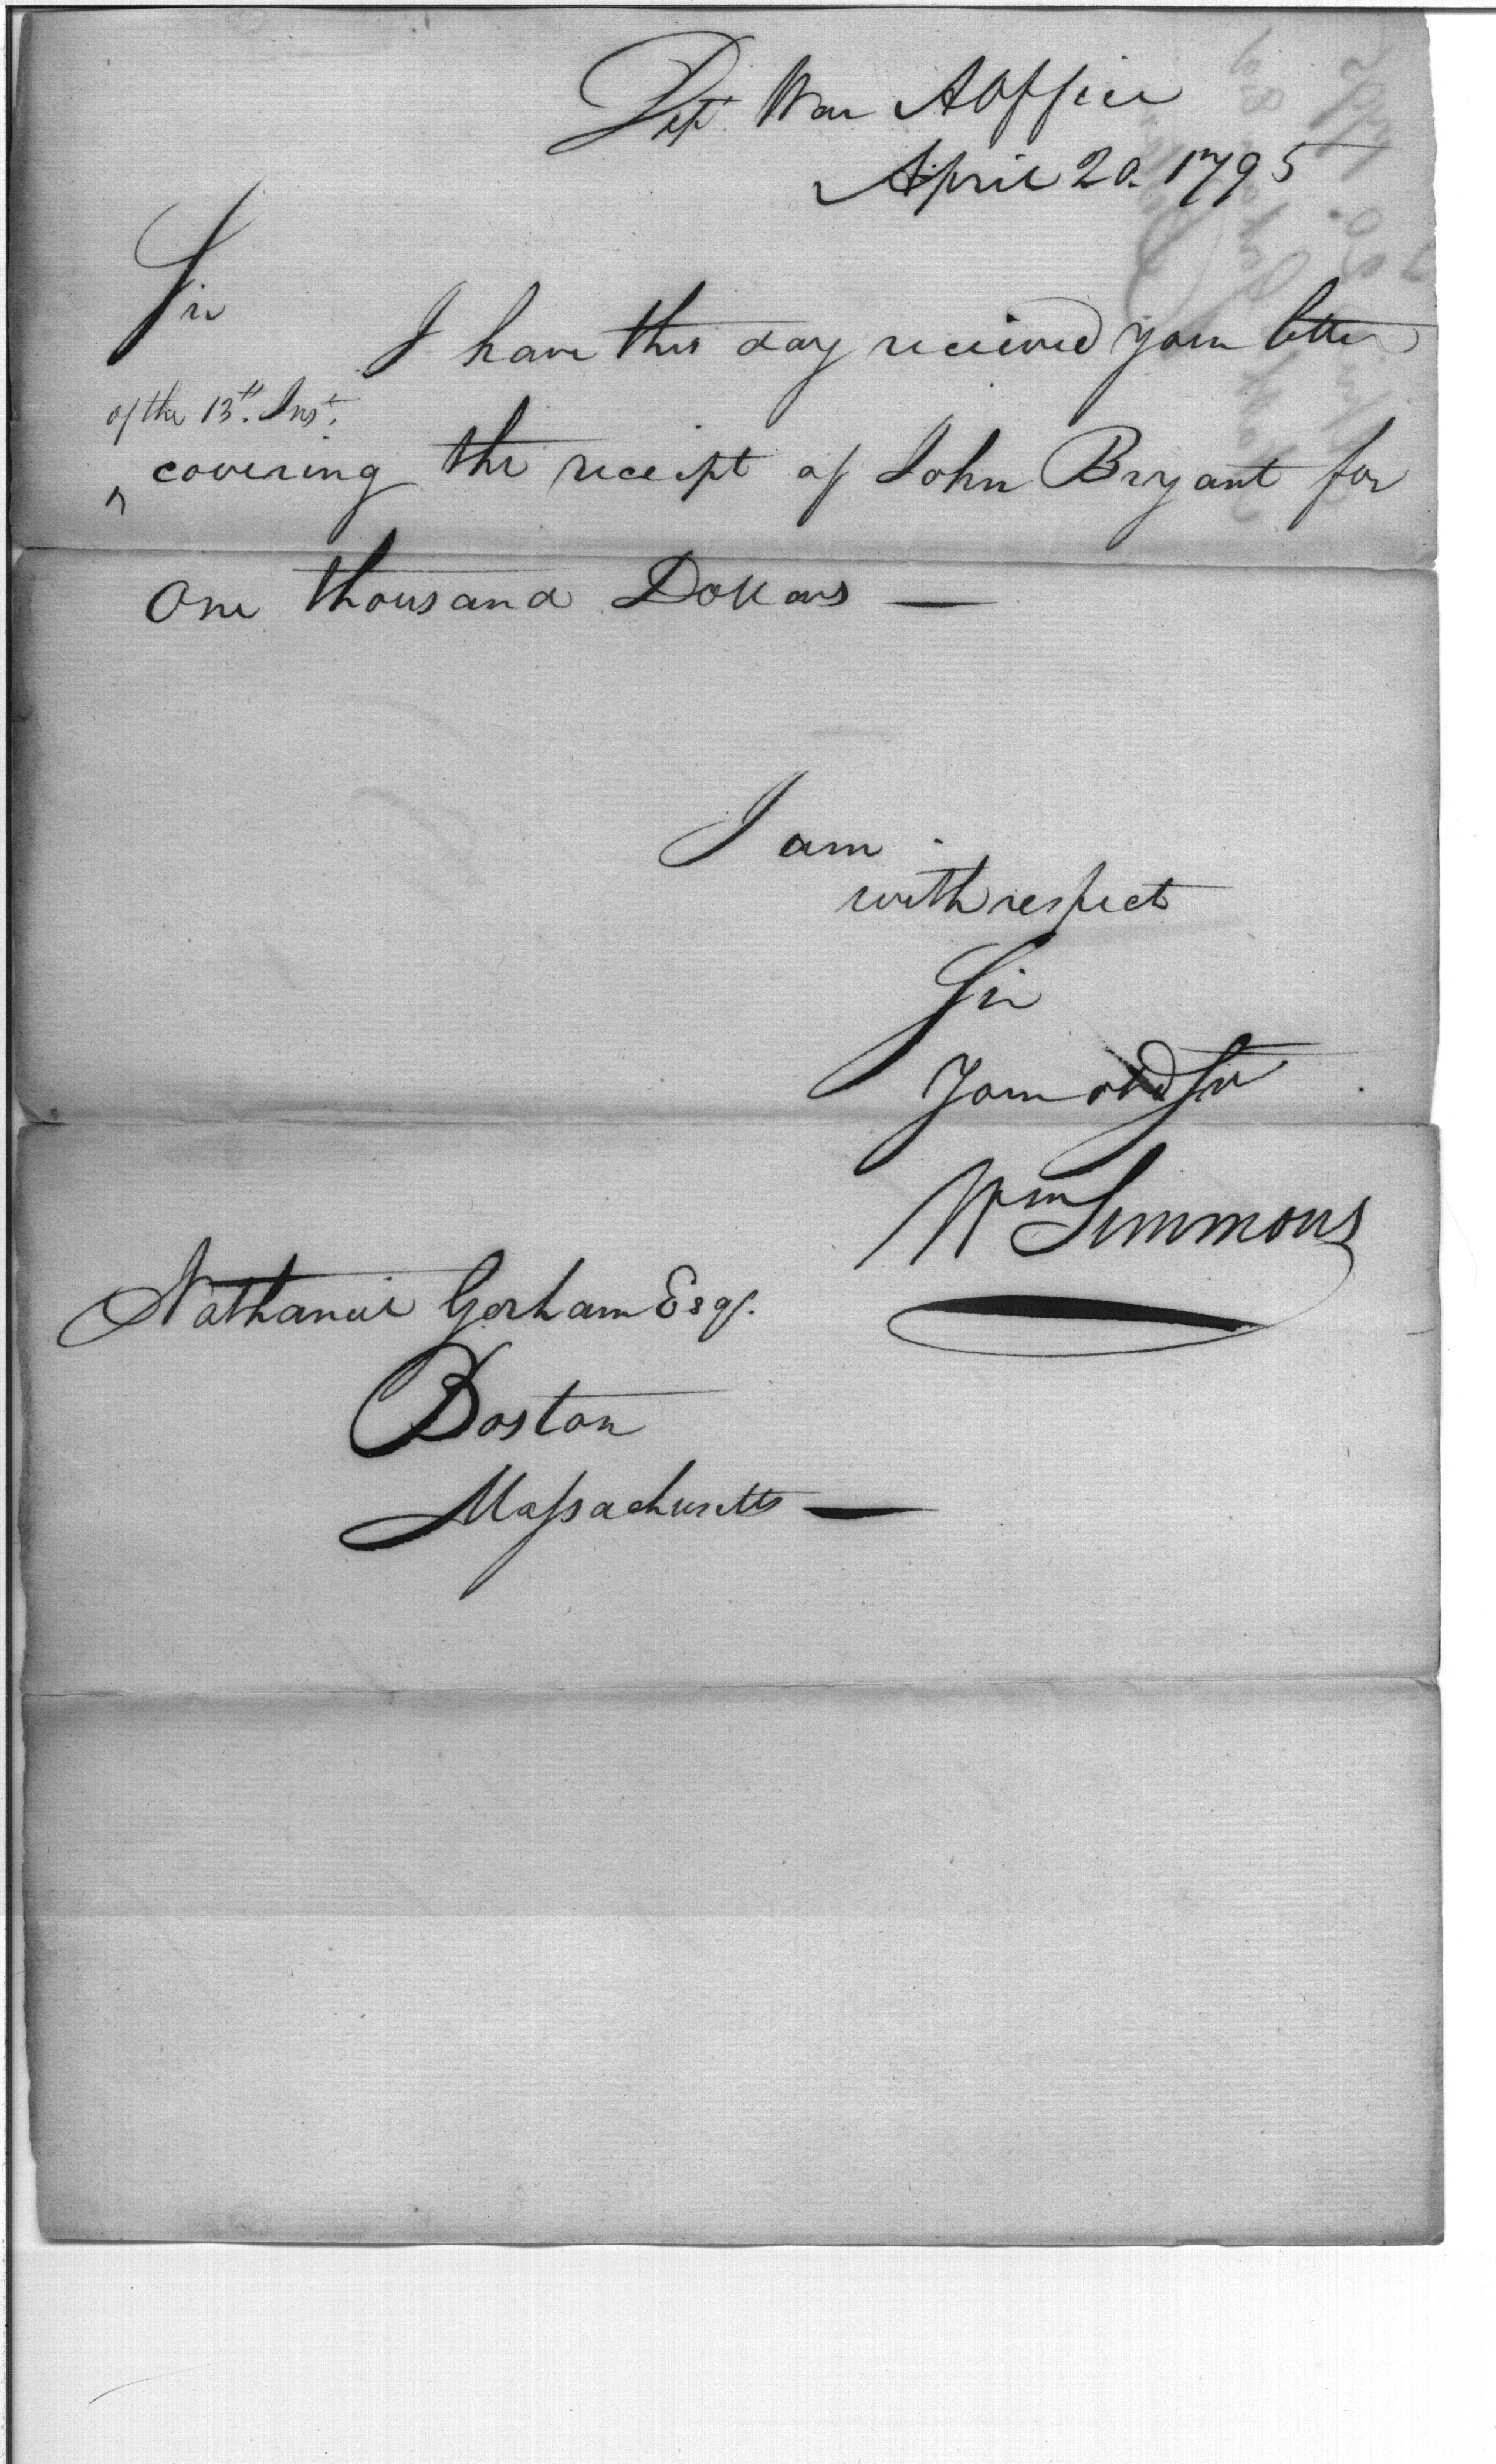 Dept. War A Office
April 20. 1795
Sir
I have this day received your letter
of the 13th. Inst.
^ covering the receipt of John Bryant for
One thousand Dollars —
I am
with respect
Sir
Your obd Sr
Wm Simmons
Nathaniel Gorham Esqr.
Boston
Massachusetts —